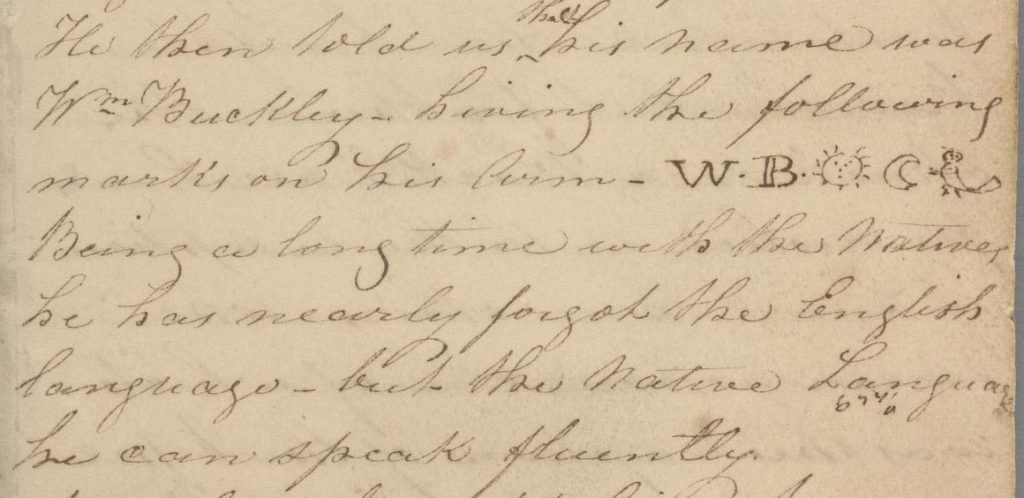 He then told us that his name was
Wm Buckley - having the following
marks on his Arm - W. B.
Being a long time with the Natives
he has nearly forgot the English
language - but the Native Language
he can speak fluently.